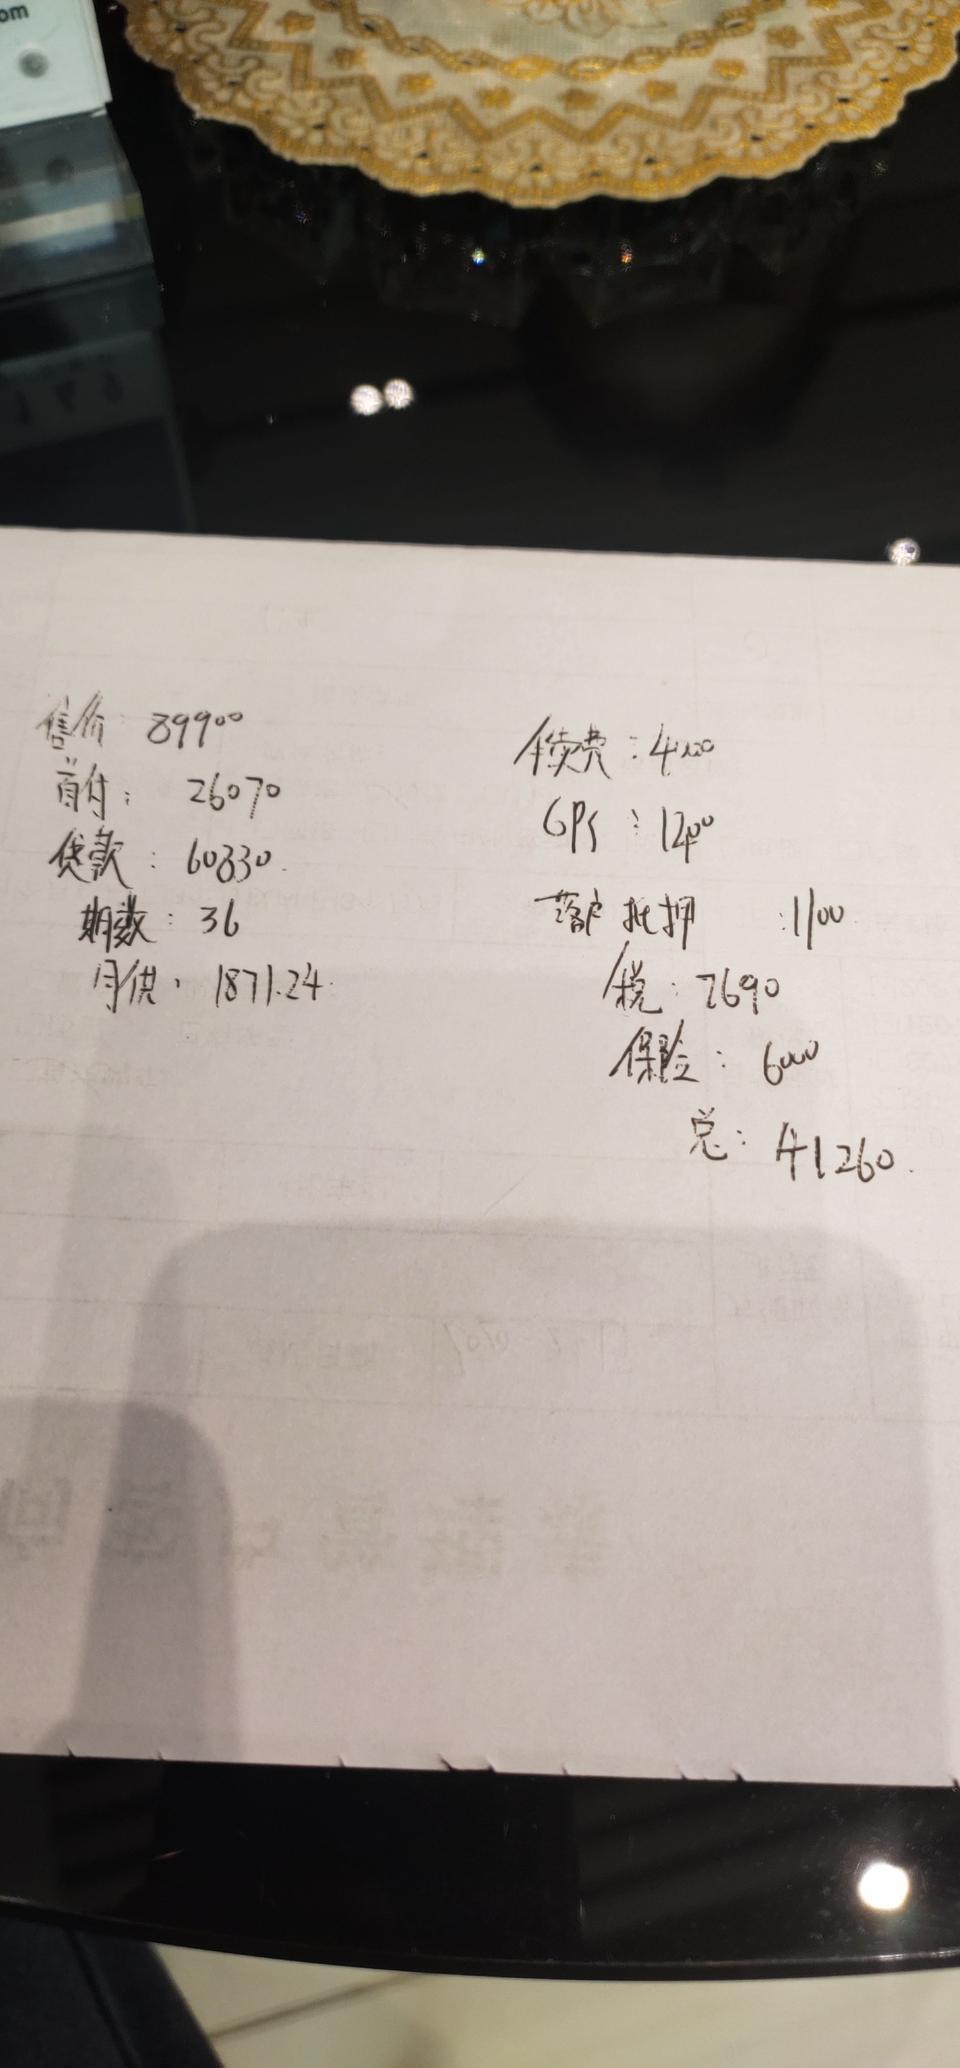 om
售价：89900
首付：26070
贷款：60830.
期数：36
月供：1871.24
续费：4000
GPS：1200
落户抵押：1100
税：7690
保险：6000
总：41260.